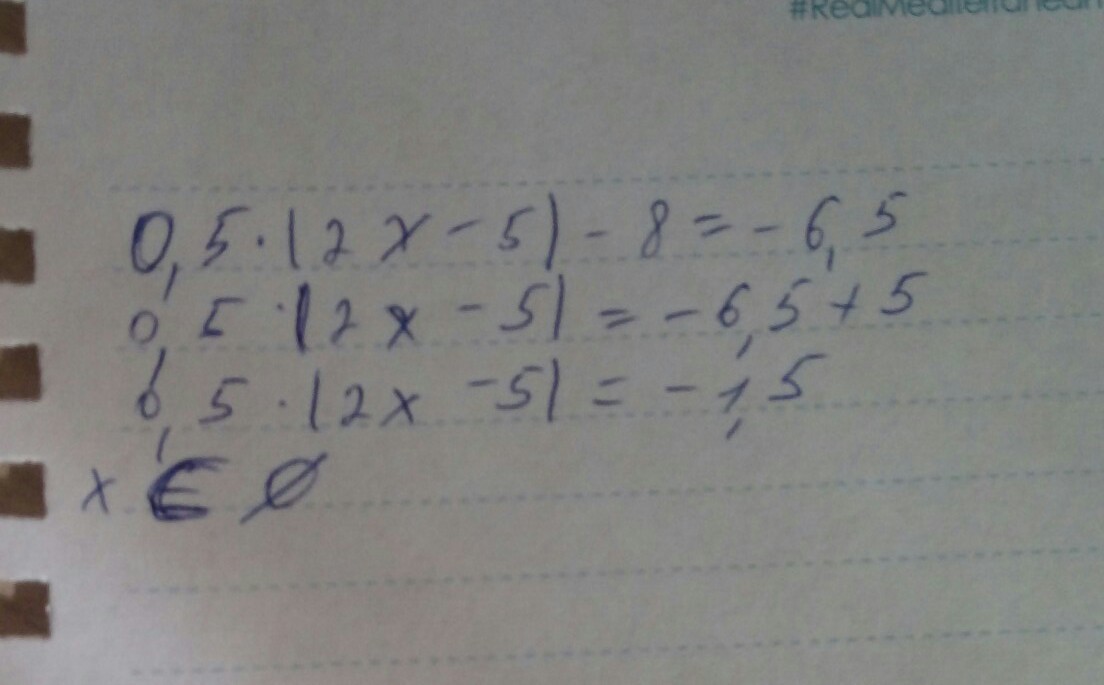 #RealMediterranean
0,5·|2x-5|-8=-6,5
0,5·|2x-5|=-6,5+5
0,5·|2x-5|=-1,5
x∈∅